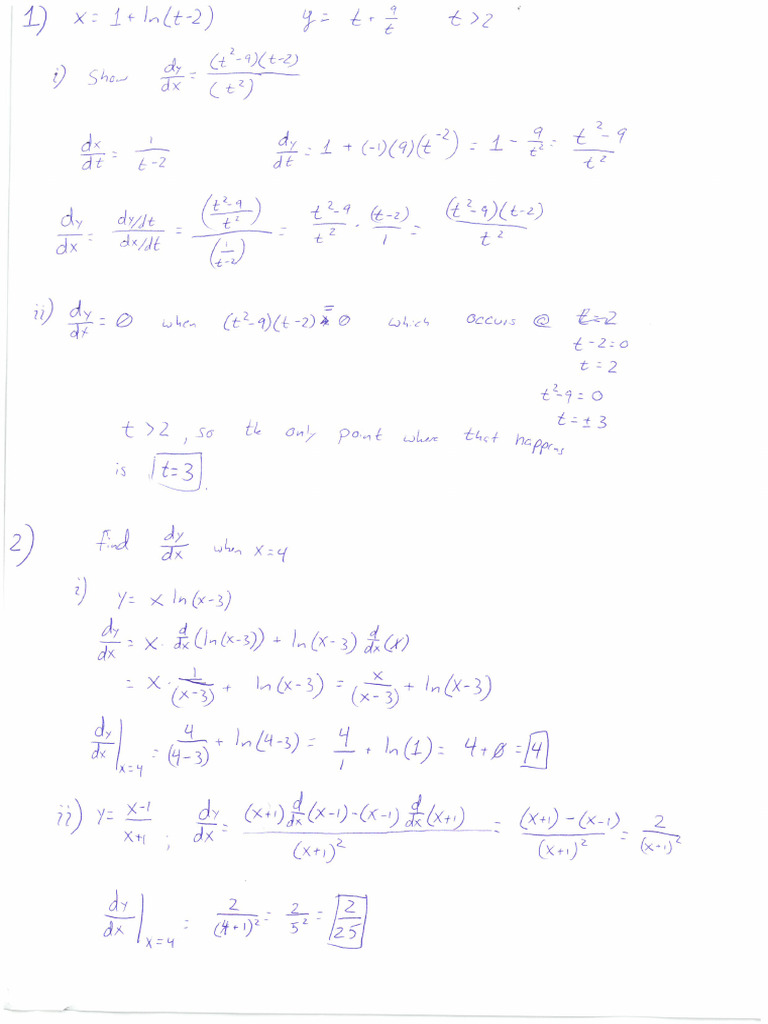 1) x = 1 + ln(t-2) y = t + 9/t t > 2
i) Show dy/dx = (t²-9)(t-2)/(t²)
dx/dt = 1/(t-2) dy/dt = 1 + (-1)(9)(t⁻²) = 1 - 9/t² = (t²-9)/t²
dy/dx = (dy/dt)/(dx/dt) = ((t²-9)/t²)/(1/(t-2)) = (t²-9)/t² · (t-2)/1 = (t²-9)(t-2)/t²
ii) dy/dx = 0 when (t²-9)(t-2) = 0 which occurs @ t=2
t-2=0
t=2
t²-9=0
t=±3
t>2, so the only point where that happens
is t=3.
2) find dy/dx when x=4
i) y = x ln(x-3)
dy/dx = x · d/dx(ln(x-3)) + ln(x-3) d/dx(x)
= x · 1/(x-3) + ln(x-3) = x/(x-3) + ln(x-3)
dy/dx|x=4 = 4/(4-3) + ln(4-3) = 4/1 + ln(1) = 4+0 = 4
ii) y = (x-1)/(x+1) ; dy/dx = ((x+1) d/dx(x-1) - (x-1) d/dx(x+1))/(x+1)² = ((x+1)-(x-1))/(x+1)² = 2/(x+1)²
dy/dx|x=4 = 2/(4+1)² = 2/5² = 2/25